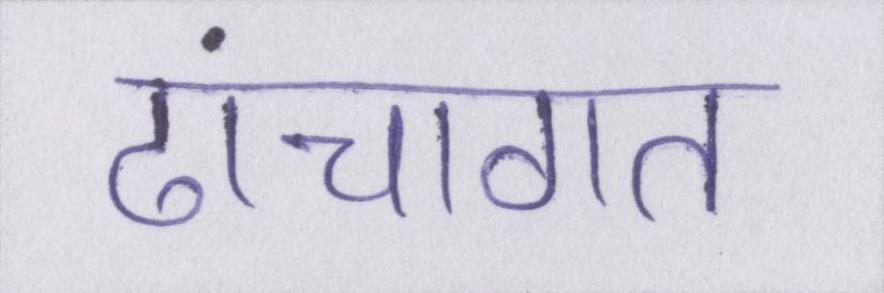 ढांचागत